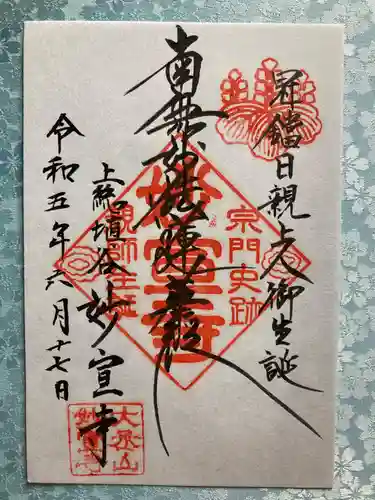 冠鐺日親上人御生誕
南無妙法蓮華経
妙宣寺
宗門史跡
親師生誕
上総埴谷妙宣寺
令和五年六月十七日